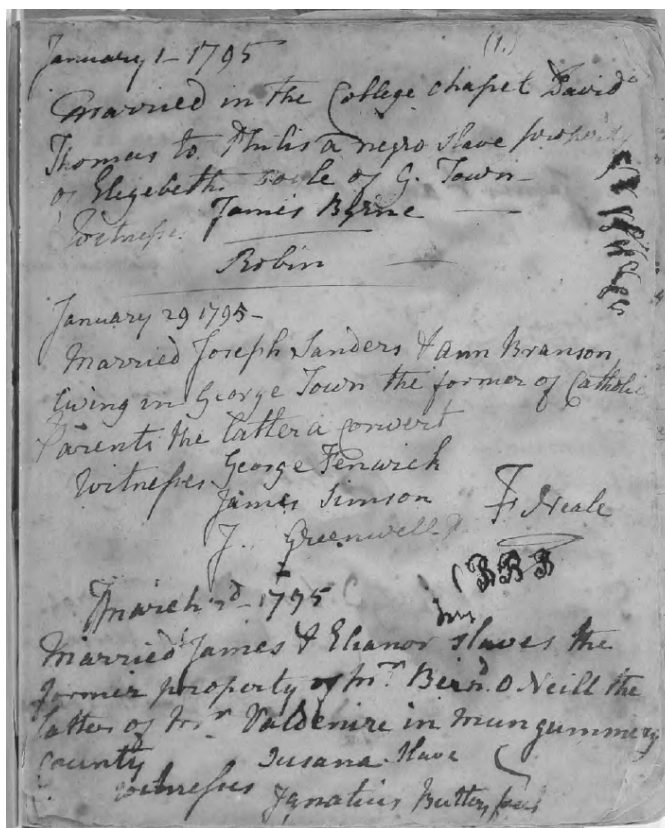 (1.)
January 1 - 1795
Married in the College chapel David
Thomas to Philis a negro slave property
of Elizebeth Doyle of G. Town -
Witness James Byrne
Robin
January 29 1795 -
Married Joseph Sanders & Ann Branson
living in George Town the former of Catholic
Parents the latter a Convert
Witnesses George Fenwick
James Simson
F Neale
J. Greenwell
BBB
March 2d - 1795
Married James & Elianor slaves the
former property of Mr. Bern.d O Neill the
latter of Mr. Valdenire in Mungummery
County Susana slave
witnesses Ignatius Butler